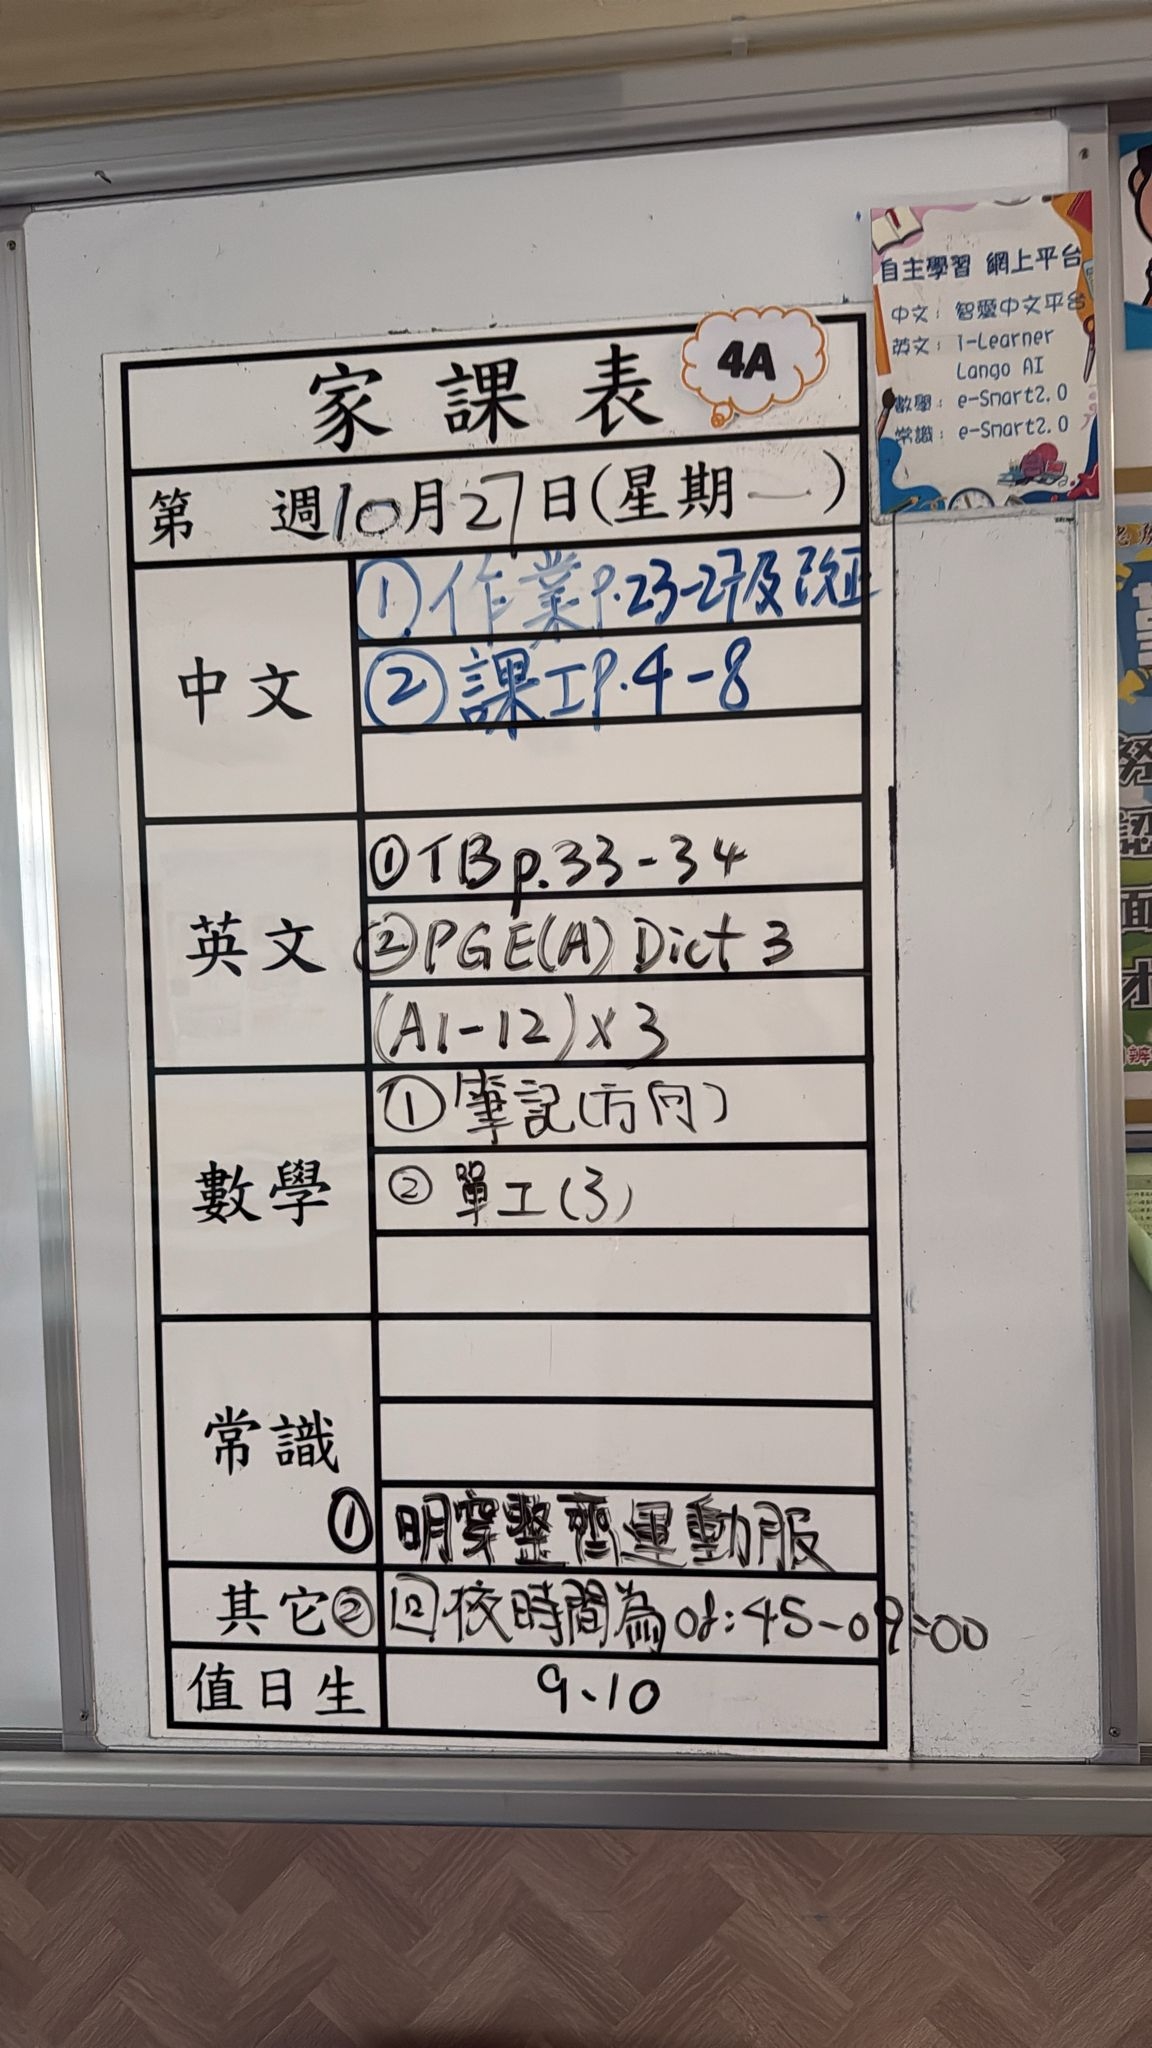 自主學習 網上平台
中文：智愛中文平台
英文：i-Learner
Lango AI
數學：e-Smart2.0
常識：e-Smart2.0
家課表
4A
第 週10月27日(星期一)
中文
①作業P.23-27及改正
②課工P.4-8
英文
①TB p.33-34
②PGE(A) Dict 3
(A1-12)x3
數學
①筆記(方向)
②單工(3)
常識
①明穿整齊運動服
其它
②回校時間為08:45-09:00
值日生
9、10